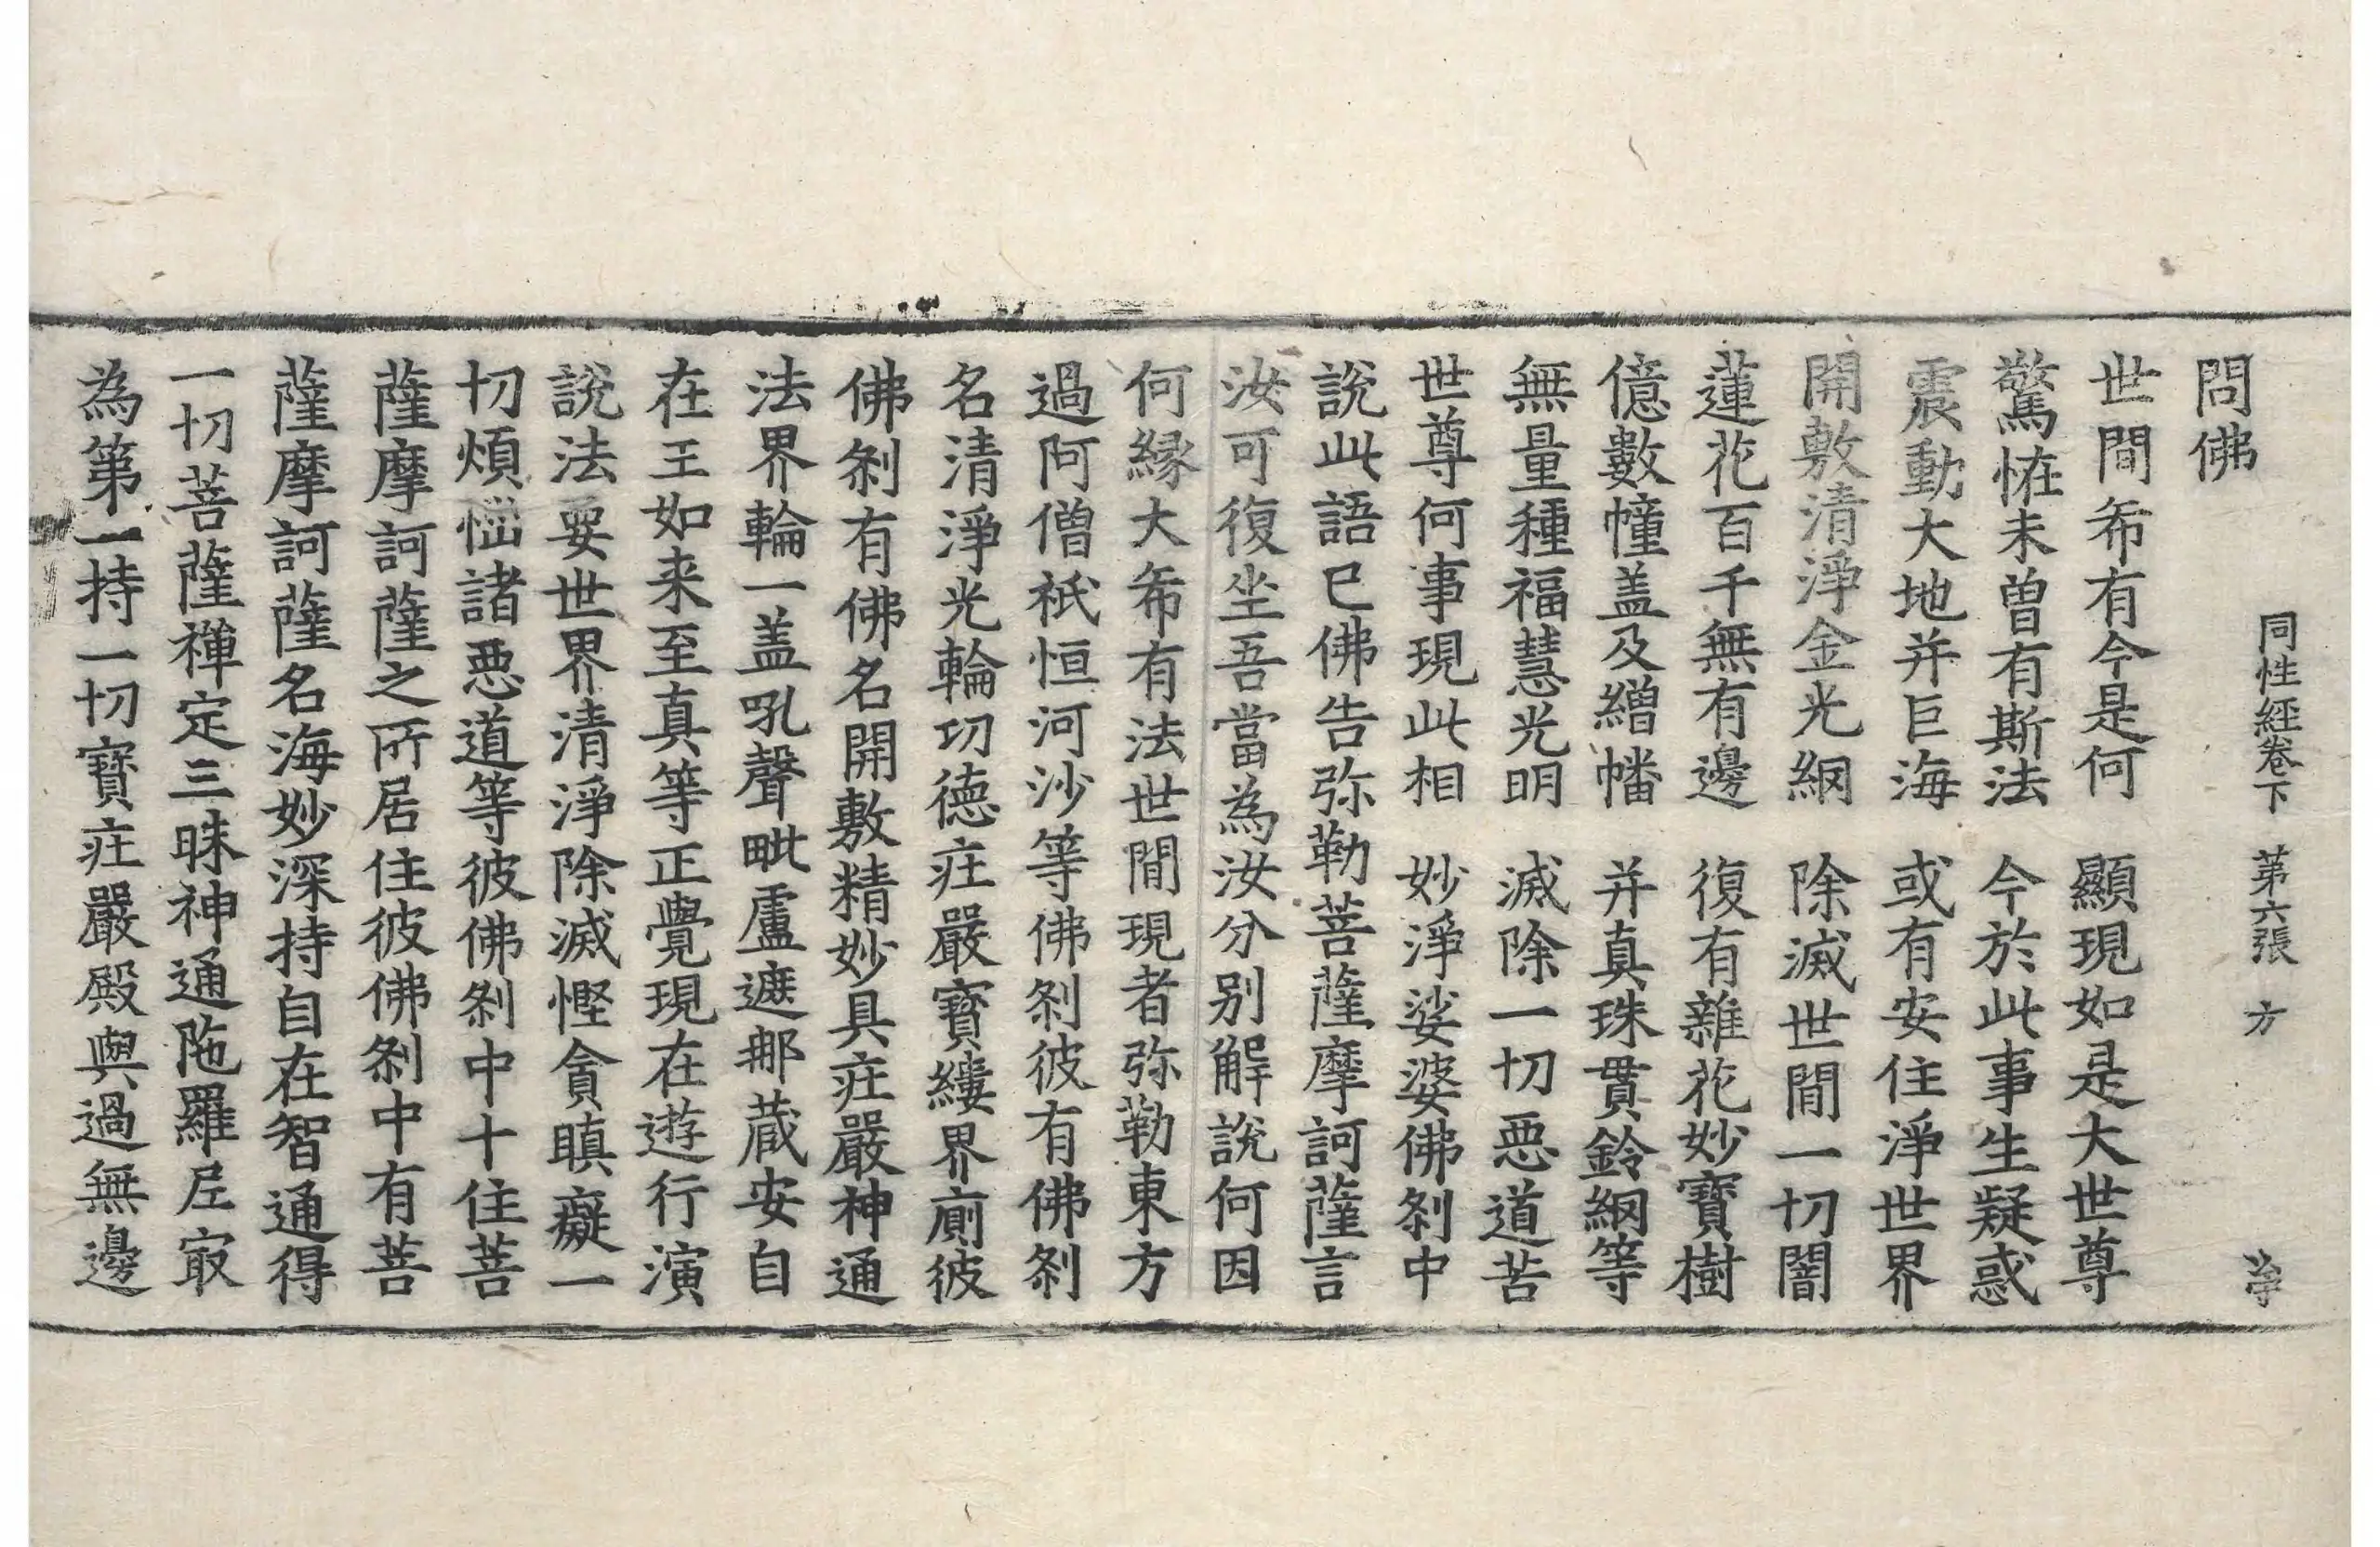 同性經卷下 第六張 方
問佛
世間希有今是何 顯現如是大世尊
驚恠未曾有斯法 今於此事生疑惑
震動大地并巨海 或有安住淨世界
開敷清淨金光網 除滅世間一切闇
蓮花百千無有邊 復有雜花妙寶樹
億數幢盖及繒幡 并真珠貫鈴網等
無量種福慧光明 滅除一切惡道苦
世尊何事現此相 妙淨娑婆佛剎中
說此語已佛告弥勒菩薩摩訶薩言
汝可復坐吾當為汝分別解說何因
何緣大希有法世間現者弥勒東方
過阿僧祇恒河沙等佛剎彼有佛剎
名清淨光輪功德疘嚴寶縷界廁彼
佛剎有佛名開敷精妙具疘嚴神通
法界輪一盖吼聲毗盧遮那蔵安自
在王如来至真等正覺現在遊行演
說法要世界清淨除滅慳貪瞋癡一
切煩惱諸惡道等彼佛剎中十住菩
薩摩訶薩之所居住彼佛剎中有菩
薩摩訶薩名海妙深持自在智通得
一切菩薩禪定三昧神通陁羅尼冣
為第一持一切寶疘嚴殿與過無邊